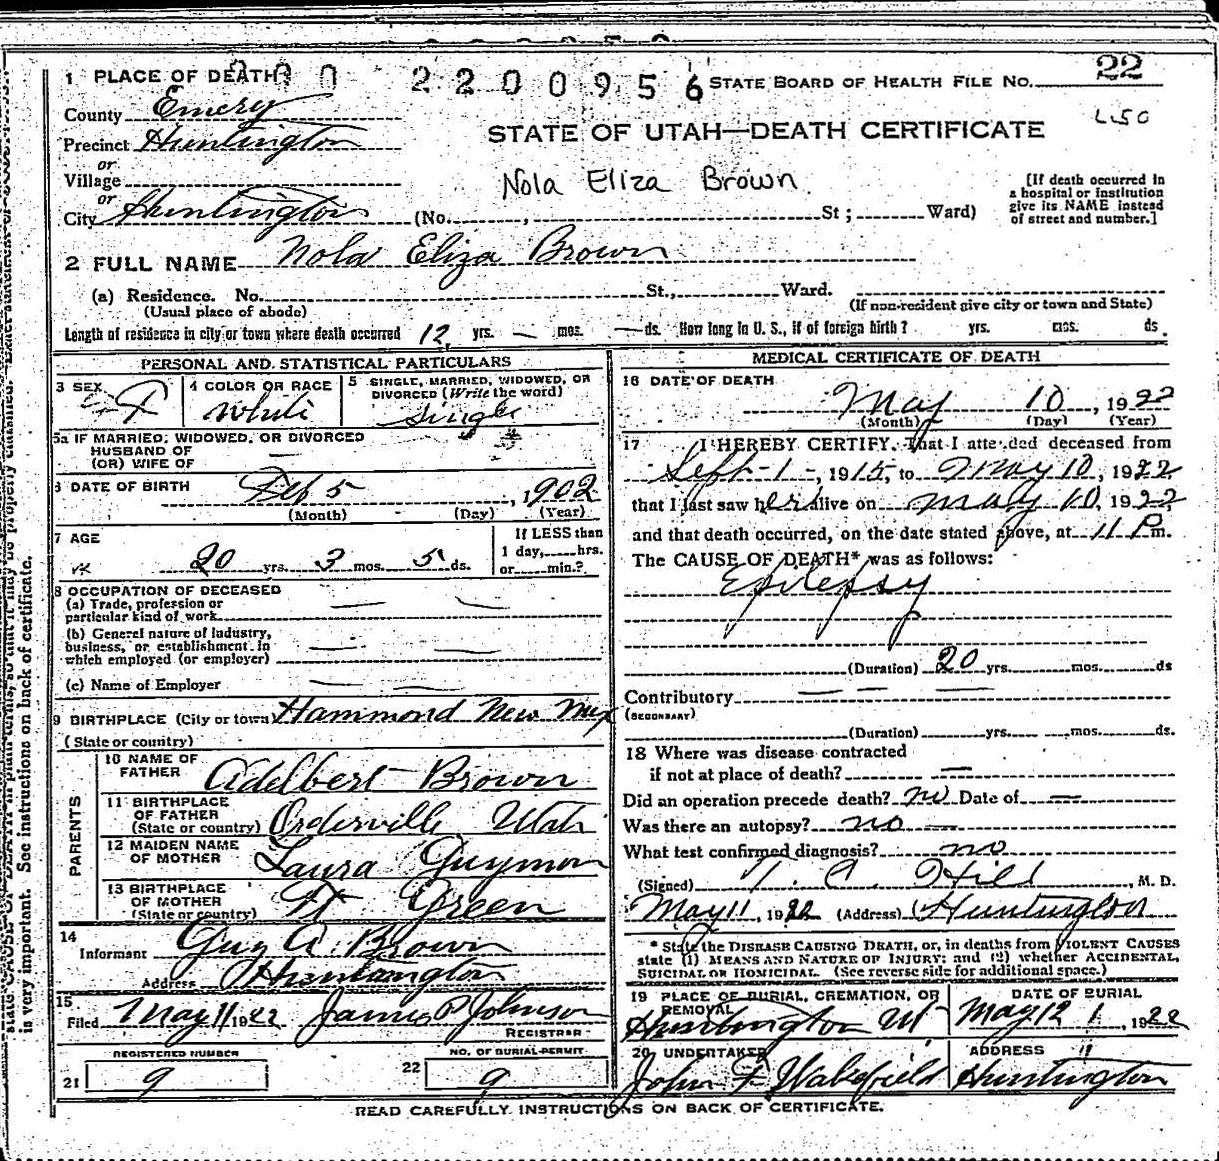 1 PLACE OF DEATH 2200956 STATE BOARD OF HEALTH FILE No. 22
County Emery
L50
Precinct Huntington
STATE OF UTAH—DEATH CERTIFICATE
or
Village
Nola Eliza Brown
[If death occurred in a hospital or institution give its NAME instead of street and number.]
or
City Huntington (No. , St ; Ward)
2 FULL NAME Nola Eliza Brown
(a) Residence. No. St., Ward.
(Usual place of abode) (If non-resident give city or town and State)
Length of residence in city or town where death occurred 12 yrs. — mos. — ds. How long in U. S., if of foreign birth? yrs. mos. ds.
PERSONAL AND STATISTICAL PARTICULARS
3 SEX F
4 COLOR OR RACE White
5 SINGLE, MARRIED, WIDOWED, OR DIVORCED (Write the word) Single
5a IF MARRIED, WIDOWED, OR DIVORCED
HUSBAND OF
(OR) WIFE OF —
6 DATE OF BIRTH Feb 5, 1902
(Month) (Day) (Year)
7 AGE 20 yrs. 3 mos. 5 ds.
If LESS than
1 day, hrs.
or min.?
8 OCCUPATION OF DECEASED
(a) Trade, profession or
particular kind of work — —
(b) General nature of industry,
business, or establishment in
which employed (or employer) — —
(c) Name of Employer — —
9 BIRTHPLACE (City or town) Hammond New Mex
(State or country)
PARENTS
10 NAME OF FATHER Adelbert Brown
11 BIRTHPLACE OF FATHER (State or country) Orderville Utah
12 MAIDEN NAME OF MOTHER Laura Guymon
13 BIRTHPLACE OF MOTHER (State or country) Ft Green
14
Informant Guy A. Brown
Address Huntington
15
Filed May 11 1922 James P Johnson
REGISTRAR
REGISTERED NUMBER
21 9
NO. OF BURIAL PERMIT
22 9
MEDICAL CERTIFICATE OF DEATH
16 DATE OF DEATH
May 10, 1922
(Month) (Day) (Year)
17 I HEREBY CERTIFY, That I attended deceased from
Sept-1-, 1915, to May 10, 1922
that I last saw her alive on May 10, 1922
and that death occurred, on the date stated above, at 11 P m.
The CAUSE OF DEATH* was as follows:
Epilepsy
(Duration) 20 yrs. mos. ds
Contributory — — —
(SECONDARY)
(Duration) yrs. mos. ds.
18 Where was disease contracted
if not at place of death? —
Did an operation precede death? no Date of —
Was there an autopsy? no —
What test confirmed diagnosis? no
(Signed) T. C. Hill, M. D.
May 11, 1922 (Address) Huntington
* State the DISEASE CAUSING DEATH, or, in deaths from VIOLENT CAUSES
state (1) MEANS AND NATURE OF INJURY; and (2) whether ACCIDENTAL,
SUICIDAL OR HOMICIDAL. (See reverse side for additional space.)
19 PLACE OF BURIAL, CREMATION, OR REMOVAL
Huntington Ut
DATE OF BURIAL
May 12, 1922
20 UNDERTAKER
John F Wakefield
ADDRESS
Huntington
READ CAREFULLY INSTRUCTIONS ON BACK OF CERTIFICATE.
is very important. See instructions on back of certificate.